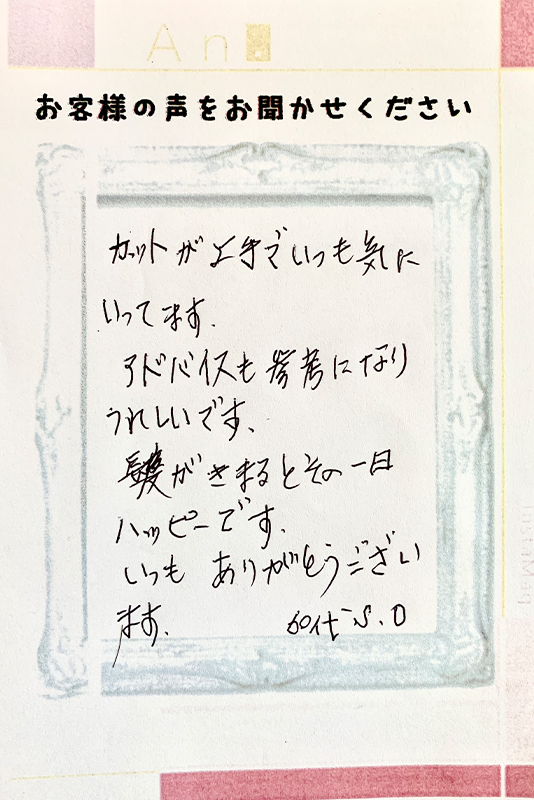 An
お客様の声をお聞かせください
カットが上手でいつも気に
いってます.
アドバイスも参考になり
うれしいです、
髪がきまるとその一日
ハッピーです.
いつも ありがとうござい
ます. 60代 S.O